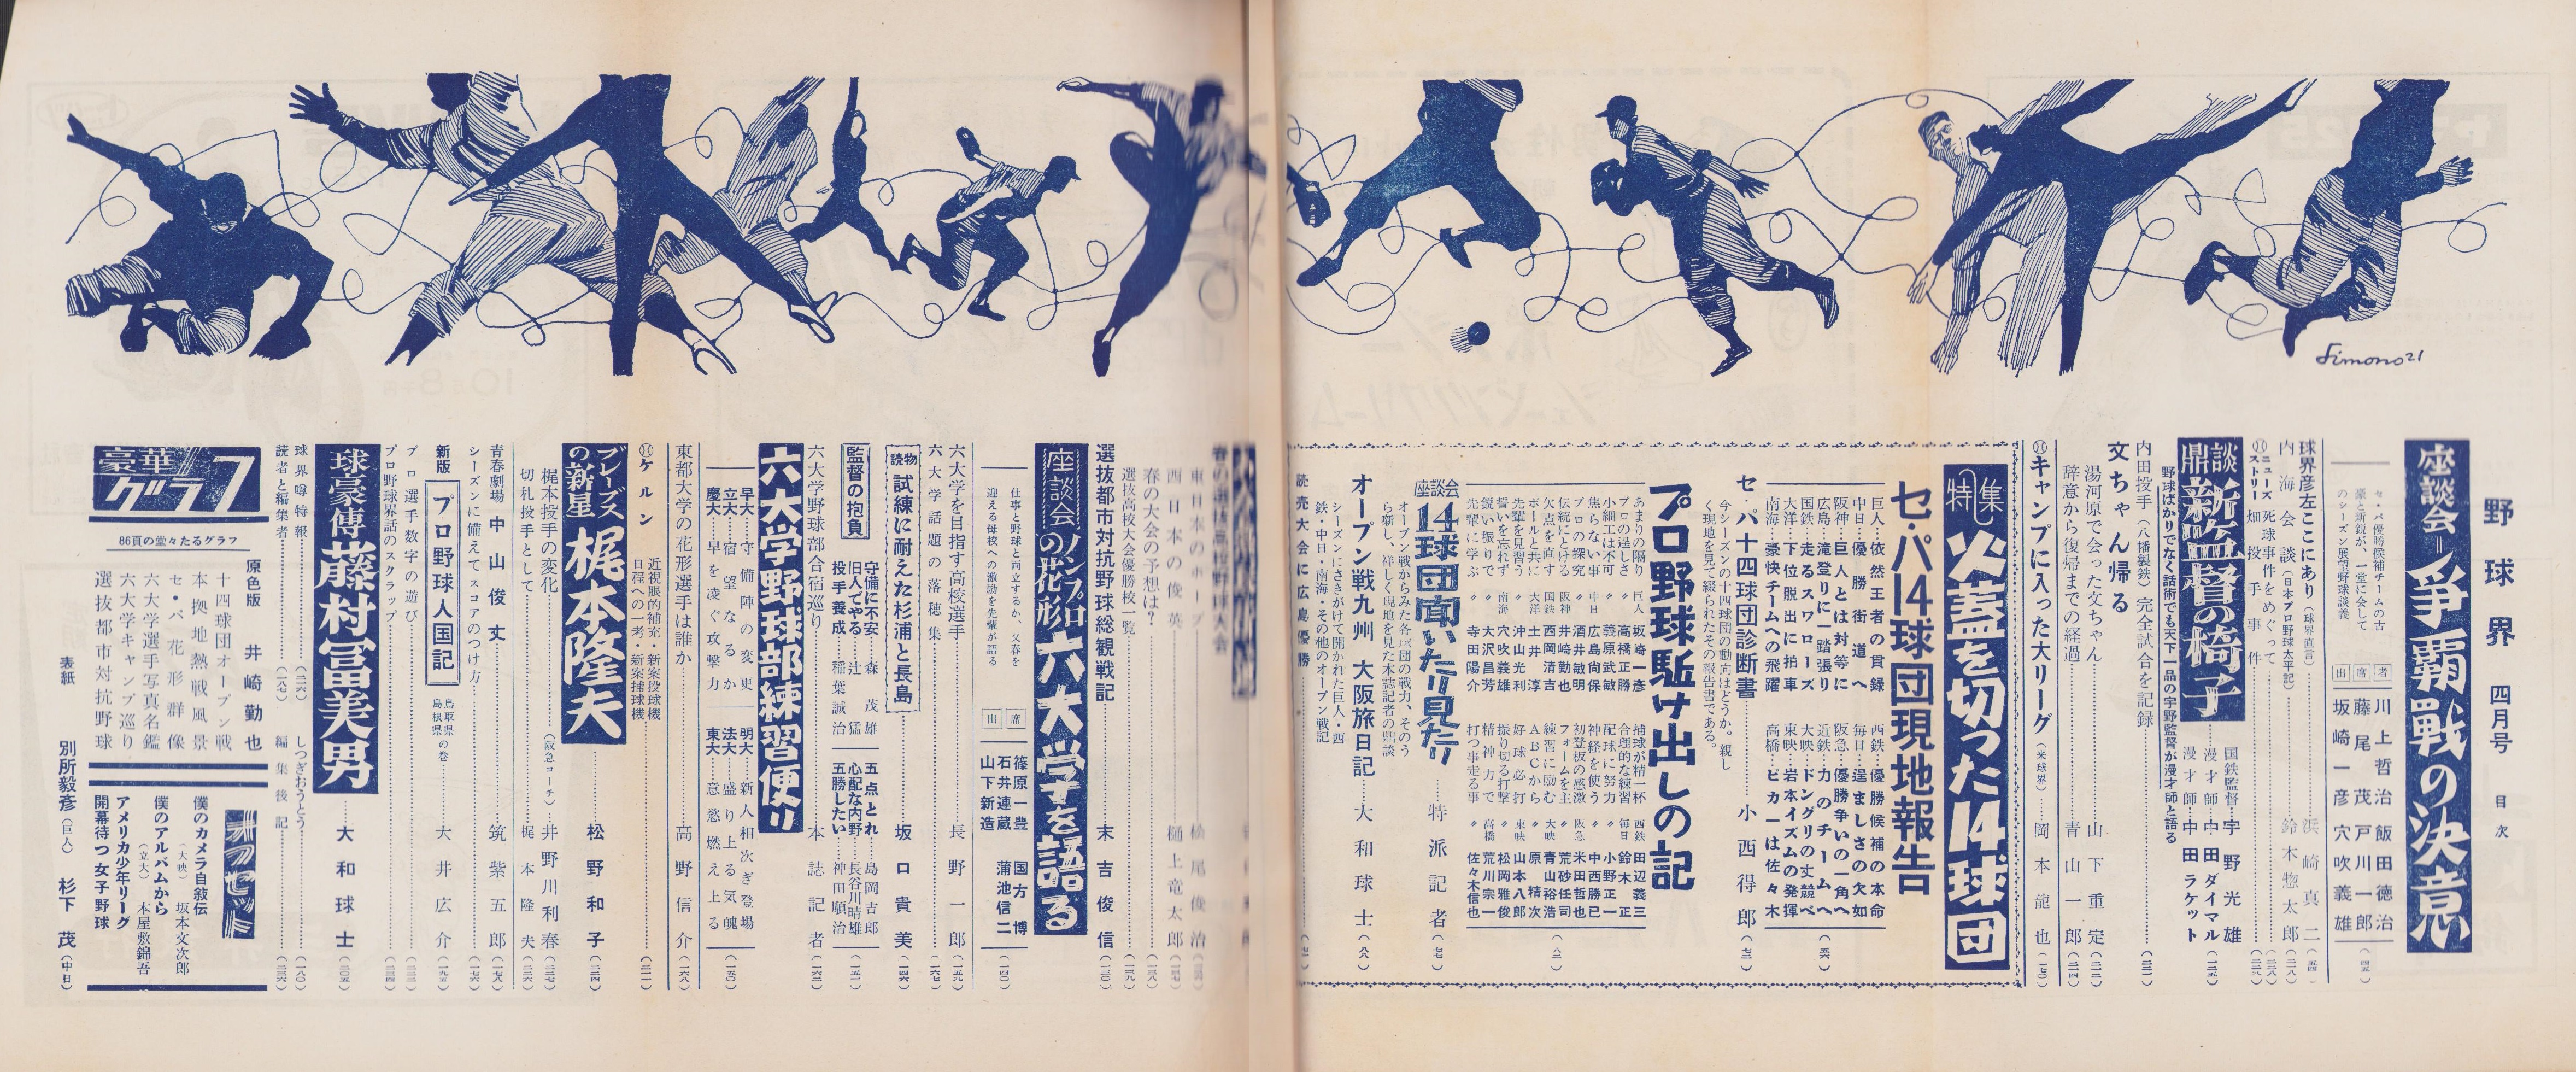 野球界 四月号 目次
座談会＝争覇戦の決意
セ・パ優勝候補チームの古
豪と新鋭が、一堂に会して
のシーズン展望野球談義
出席者
川上哲治 飯田徳治
藤尾茂 戸川一郎
坂崎一彦 穴吹義雄
球界彦左ここにあり（球界直言）
浜崎真二
内海会談（日本プロ野球太平記）
鈴木惣太郎
ニュースストリー 死球事件をめぐって
畑投手事件
鼎談 新監督の椅子
国鉄監督・宇野光雄
漫才師・中田ダイマル
漫才師・中田ラケット
野球ばかりでなく話術でも天下一品の宇野監督が漫才師と語る
内田投手（八幡製鉄）完全試合を記録
文ちゃん帰る
湯河原で会った文ちゃん 山下重定
辞意から復帰までの経過 青山一郎
キャンプに入った大リーグ（米球界） 岡本龍也
特集 火蓋を切った14球団
セ・パ14球団現地報告
巨人・依然王者の貫録
中日・優勝街道へ
阪神・巨人とは対等に
広島・滝登りに一踏張り
国鉄・走るスワローズ
大洋・下位脱出に拍車
南海・豪快チームへの飛躍
西鉄・優勝候補の本命
毎日・逞ましさの欠如
阪急・優勝争いの一角へ
近鉄・力のチームへ
大映・ドングリの丈競べ
東映・岩本イズムの発揮
高橋・ピカ一は佐々木
セ・パ十四球団診断書 小西得郎
今シーズンの十四球団の動向はどうか。親し
く現地を見て綴られたその報告書である。
プロ野球駈け出しの記
あまりの隔り 巨人 坂崎一彦
プロの逞しさ 〃 高橋正勝
小細工は不可 〃 義原武敏
焦らない事 中日 広島尚保
プロの探究 〃 酒井敏明
伝統にとける 阪神 井崎勤也
欠点を直す 国鉄 西岡清吉
ボールと共に 大洋 土井淳
先輩を見習う 〃 沖山光利
誓いを忘れず 南海 穴吹義雄
鋭い振りで 〃 大沢昌芳
先輩に学ぶ 〃 寺田陽介
捕球が精一杯 西鉄 田辺義三
合理的な練習 毎日 鈴木正
配球に努力 〃 小野正一
神経を使う 〃 中西勝己
初登板の感激 阪急 米田哲也
フォームを主 〃 荒砂任司
練習に励む 大映 青山裕浩
ＡＢＣから 〃 原精次
好球必打 東映 山本八郎
振り切る打撃 〃 松岡雅俊
精神力で 高橋 荒川宗一
打つ事走る事 〃 佐々木信也
座談会 14球団聞いたり見たり 特派記者
オープン戦からみた各球団の戦力、そのう
ら噺し、祥しく現地を見た本誌記者の鼎談
オープン戦九州 大阪旅日記 大和球士
シーズンにさきがけて開かれた巨人・西
鉄・中日・南海・その他のオープン戦記
読売大会に広島優勝
東日本のホープ 松尾俊治
西日本の俊英 樋上竜太郎
春の大会の予想は？
選抜高校大会優勝校一覧
選抜都市対抗野球総観戦記 末吉俊信
座談会 ノンプロの花形 六大学を語る
仕事と野球と両立するか、又春を
迎える母校への激励を先輩が語る
出席
篠原一豊 国方博
石井連蔵 蒲池信二
山下新造
六大学を目指す高校選手 長野一郎
六大学話題の落穂集
読物 試練に耐えた杉浦と長島 坂口貴美
監督の抱負
守備に不安 森茂雄
旧人でやる 辻猛
投手養成 稲葉誠治
五点とれ 島岡吉郎
心配な内野 長谷川晴雄
五勝したい 神田順治
六大学野球部合宿巡り 本誌記者
六大学野球部練習便り
早大 守備陣の変更
立大 宿望なるか
慶大 早を凌ぐ攻撃力
明大 新人相次ぎ登場
法大 盛り上る気魄
東大 意慾燃え上る
東都大学の花形選手は誰か 高野信介
ケルン 近視眼的補充・新案投球機
日程への一考・新案捕球機
ブレーブスの新星 梶本隆夫 松野和子
梶本投手の変化（阪急コーチ） 井野川利春
切札投手として 梶本隆夫
青春劇場 中山俊丈 筑紫五郎
シーズンに備えてスコアのつけ方
新版 プロ野球人国記 鳥取県 島根県の巻 大井広介
プロ選手数字の遊び
プロ野球界話のスクラップ
球豪傳 藤村冨美男 大和球士
球界噂特報 しつぎおうとう
読者と編集者 編集後記
豪華グラフ
86頁の堂々たるグラフ
原色版 井崎勤也
十四球団オープン戦
本拠地熱戦風景
セ・パ花形群像
六大学選手写真名鑑
六大学キャンプ巡り
選抜都市対抗野球
オフセット
僕のカメラ自敍伝（大映） 坂本文次郎
僕のアルバムから（立大） 本屋敷錦吾
アメリカ少年リーグ
開幕待つ女子野球
表紙 別所毅彦（巨人） 杉下茂（中日）
Simono21